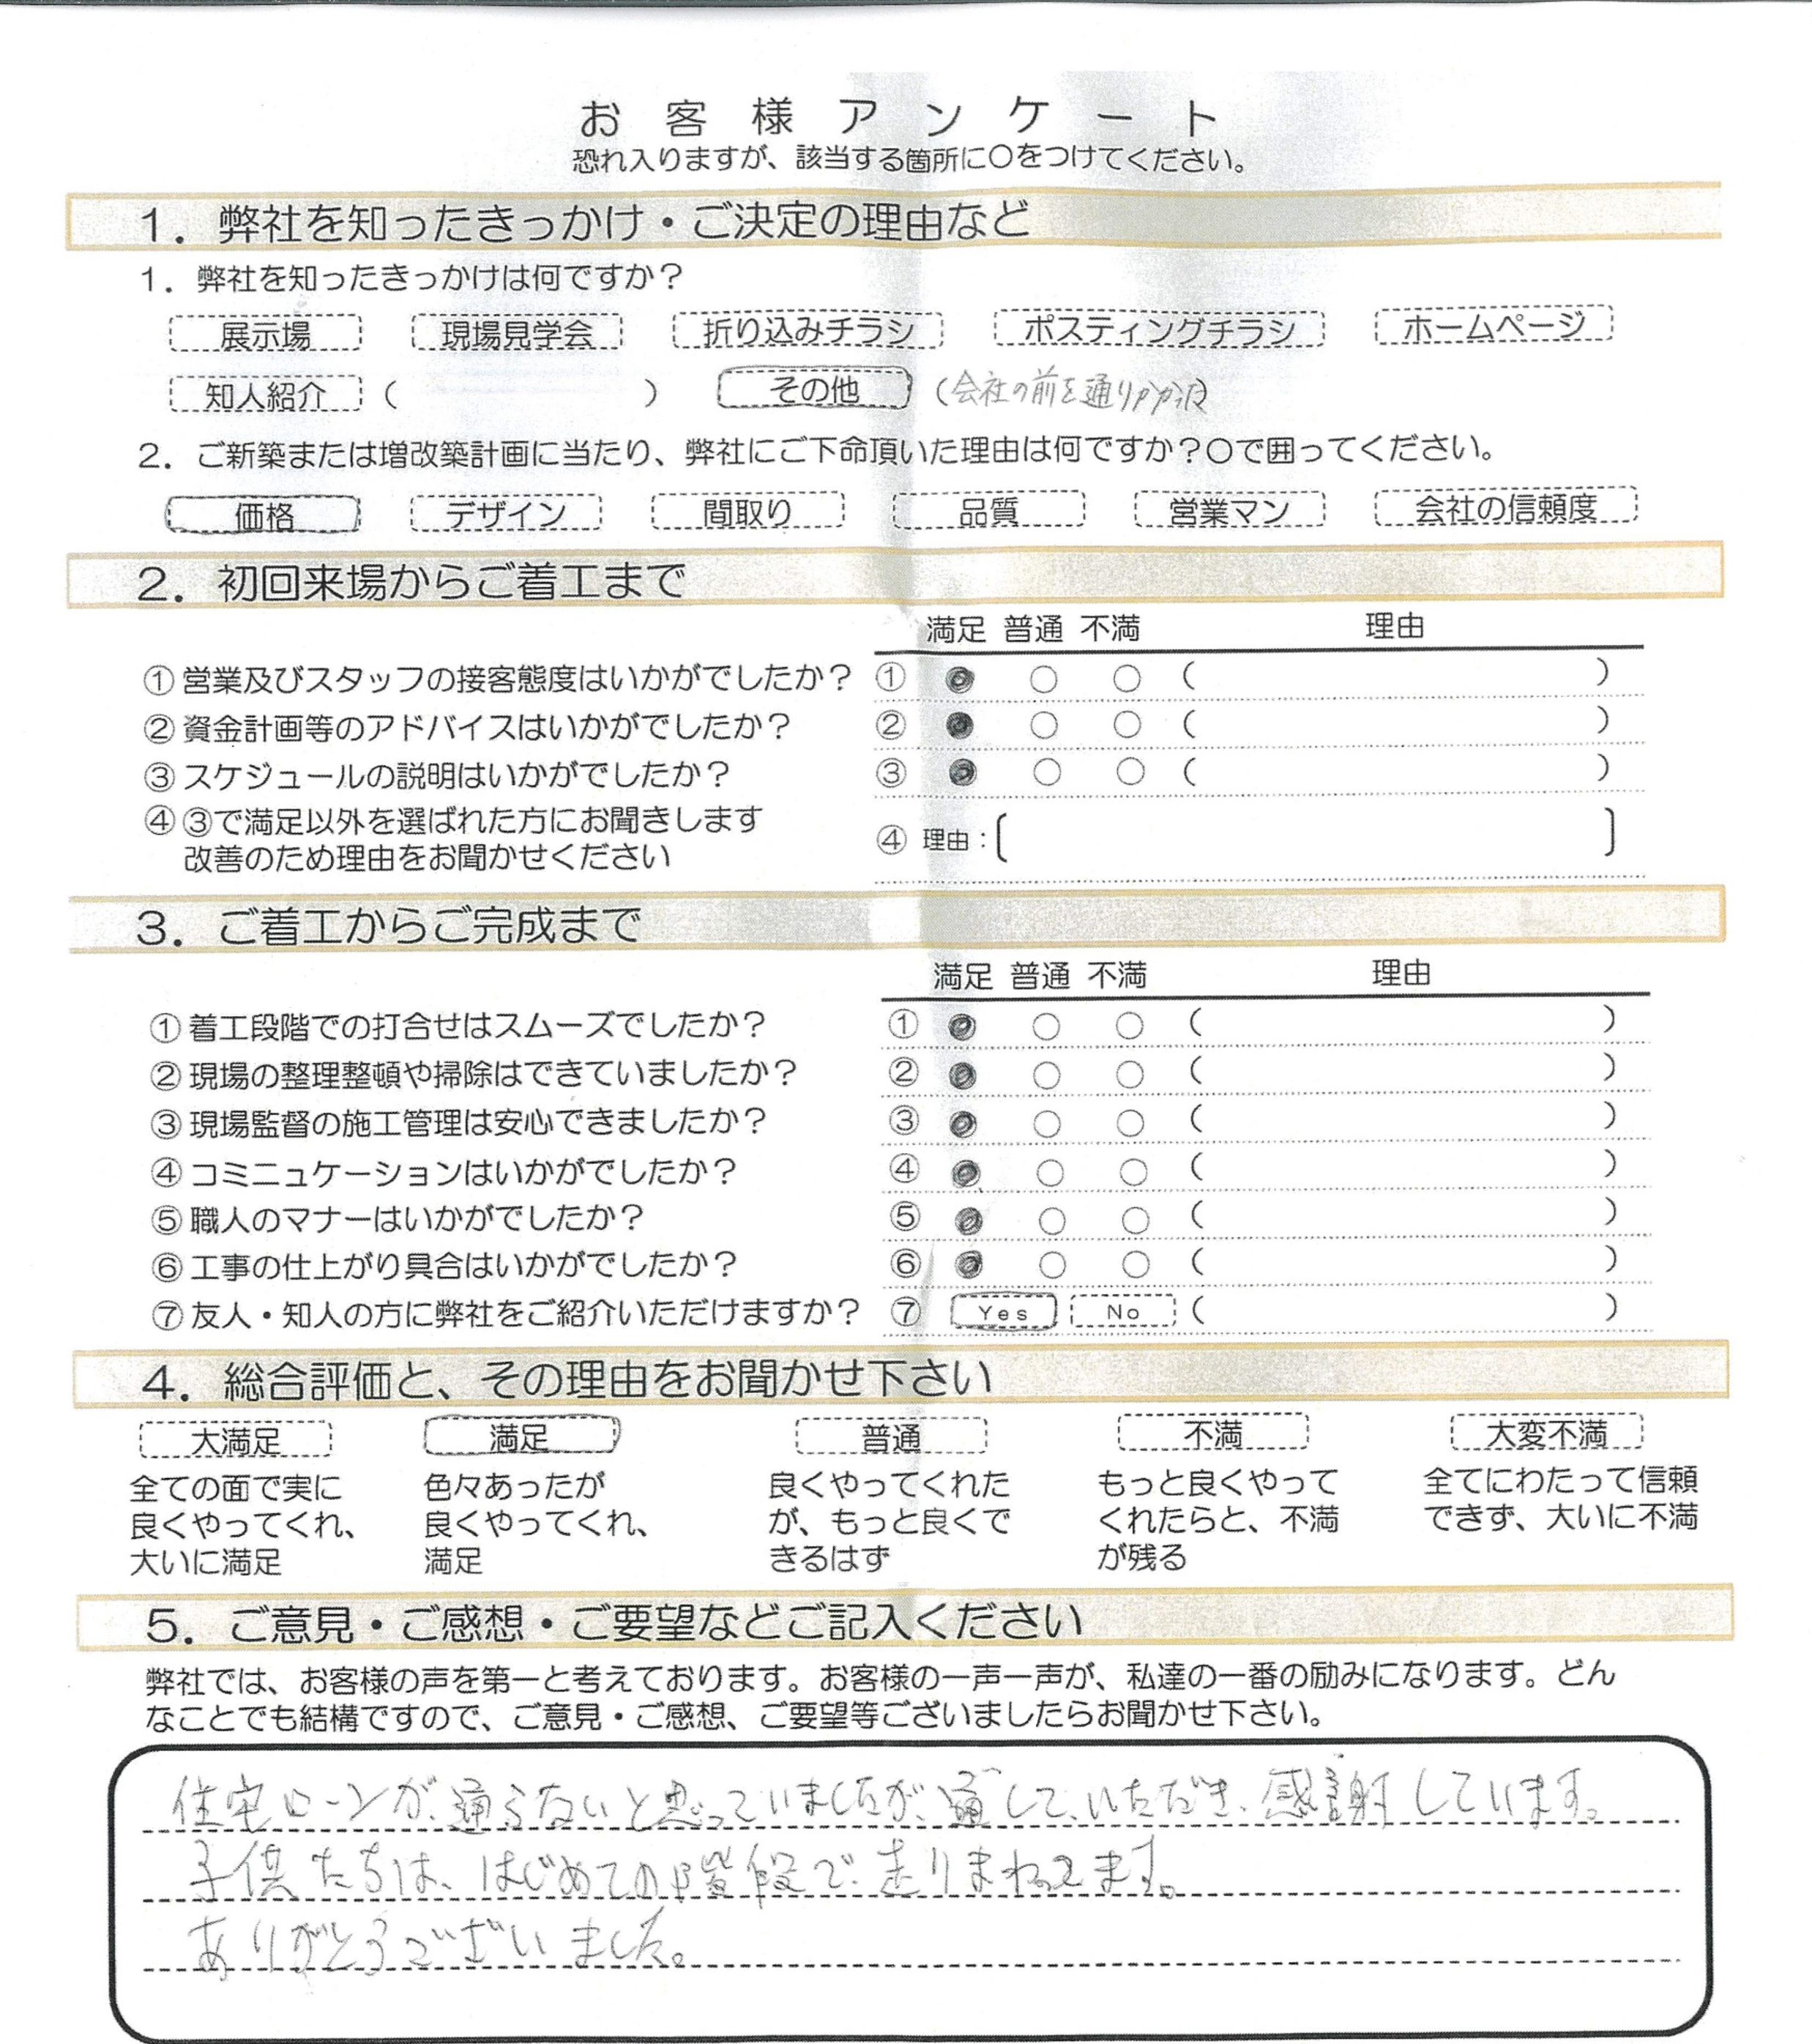 お客様アンケート
恐れ入りますが、該当する箇所に〇をつけてください。
1．弊社を知ったきっかけ・ご決定の理由など
1．弊社を知ったきっかけは何ですか？
展示場　現場見学会　折り込みチラシ　ポスティングチラシ　ホームページ
知人紹介（　　　）　その他（会社の前を通りかかった）
2．ご新築または増改築計画に当たり、弊社にご下命頂いた理由は何ですか？〇で囲ってください。
価格　デザイン　間取り　品質　営業マン　会社の信頼度
2．初回来場からご着工まで
満足　普通　不満　理由
①営業及びスタッフの接客態度はいかがでしたか？　①　●　○　○（　　　）
②資金計画等のアドバイスはいかがでしたか？　②　●　○　○（　　　）
③スケジュールの説明はいかがでしたか？　③　●　○　○（　　　）
④③で満足以外を選ばれた方にお聞きします
改善のため理由をお聞かせください　④　理由：〔　　　〕
3．ご着工からご完成まで
満足　普通　不満　理由
①着工段階での打合せはスムーズでしたか？　①　●　○　○（　　　）
②現場の整理整頓や掃除はできていましたか？　②　●　○　○（　　　）
③現場監督の施工管理は安心できましたか？　③　●　○　○（　　　）
④コミニュケーションはいかがでしたか？　④　●　○　○（　　　）
⑤職人のマナーはいかがでしたか？　⑤　●　○　○（　　　）
⑥工事の仕上がり具合はいかがでしたか？　⑥　●　○　○（　　　）
⑦友人・知人の方に弊社をご紹介いただけますか？　⑦　Yes　No（　　　）
4．総合評価と、その理由をお聞かせ下さい
大満足　満足　普通　不満　大変不満
全ての面で実に　色々あったが　良くやってくれた　もっと良くやって　全てにわたって信頼
良くやってくれ、　良くやってくれ、　が、もっと良くで　くれたらと、不満　できず、大いに不満
大いに満足　満足　きるはず　が残る
5．ご意見・ご感想・ご要望などご記入ください
弊社では、お客様の声を第一と考えております。お客様の一声一声が、私達の一番の励みになります。どん
なことでも結構ですので、ご意見・ご感想、ご要望等ございましたらお聞かせ下さい。
住宅ローンが、通らないと思っていましたが、通して、いただき、感謝しています。
子供たちは、はじめての階段で、走りまわってます。
ありがとうございました。